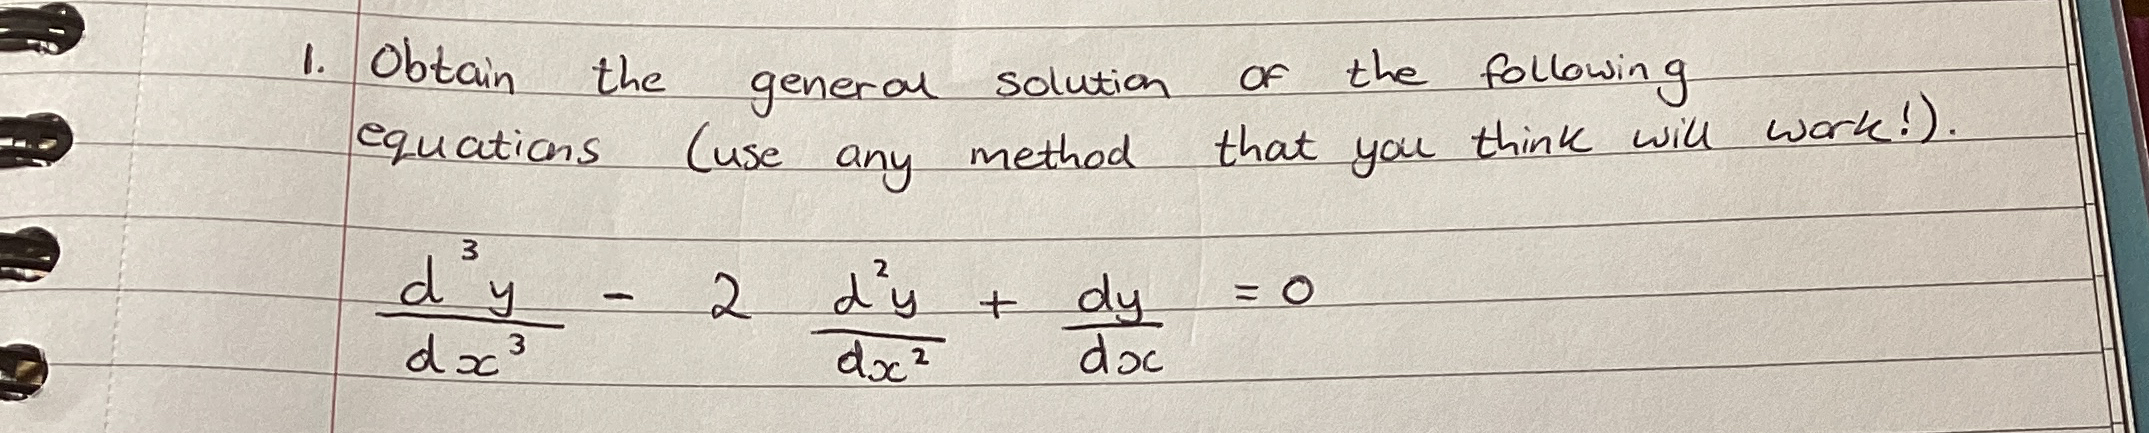 1. Obtain the general solution of the following
equations (use any method that you think will work!).
d³y/dx³ - 2 d²y/dx² + dy/dx = 0